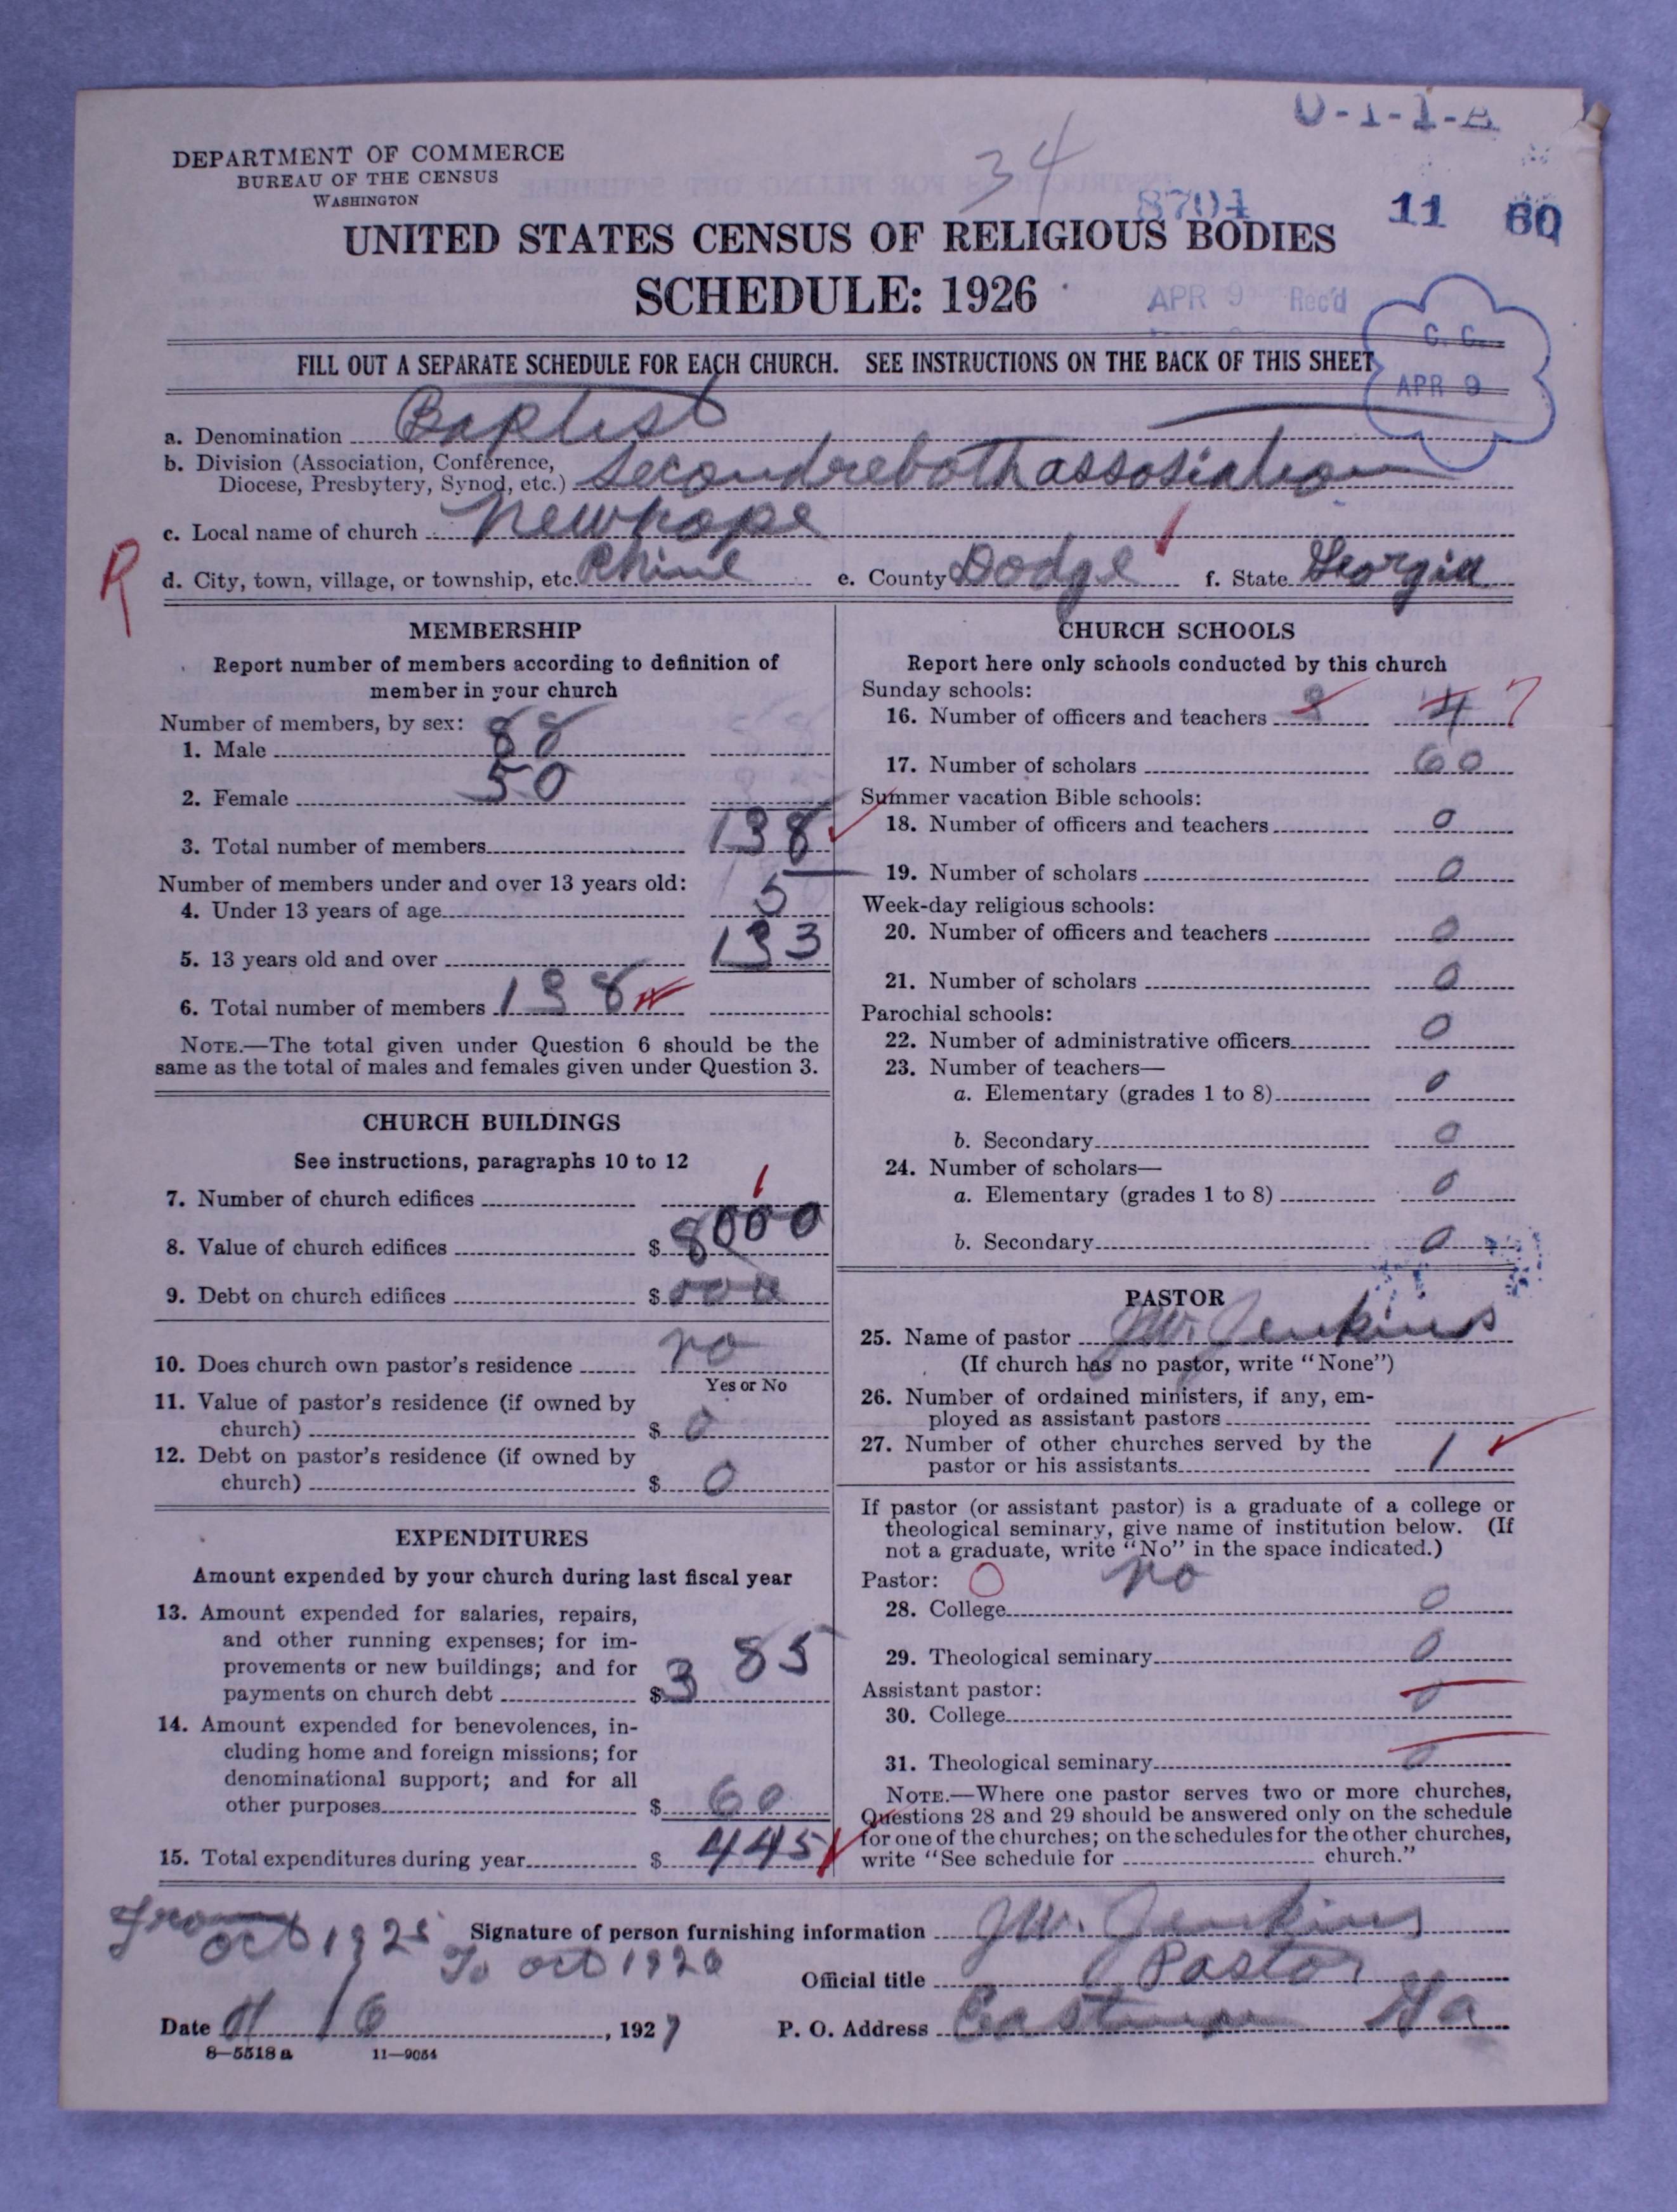 0-1-1-A
DEPARTMENT OF COMMERCE
BUREAU OF THE CENSUS
WASHINGTON
34
8704
11 60
UNITED STATES CENSUS OF RELIGIOUS BODIES
SCHEDULE: 1926
APR 9 Rec'd
C. C.
APR 9
FILL OUT A SEPARATE SCHEDULE FOR EACH CHURCH. SEE INSTRUCTIONS ON THE BACK OF THIS SHEET
a. Denomination Baptist
b. Division (Association, Conference,
Diocese, Presbytery, Synod, etc.) Secondreboth assosiation
c. Local name of church Newhope
R
d. City, town, village, or township, etc. Rhine e. County Dodge f. State Georgia
MEMBERSHIP
Report number of members according to definition of
member in your church
Number of members, by sex:
1. Male 88
2. Female 50
3. Total number of members 138
Number of members under and over 13 years old:
4. Under 13 years of age 5
5. 13 years old and over 133
6. Total number of members 138
NOTE.—The total given under Question 6 should be the
same as the total of males and females given under Question 3.
CHURCH BUILDINGS
See instructions, paragraphs 10 to 12
7. Number of church edifices 1
8. Value of church edifices $ 8000
9. Debt on church edifices $ 000
10. Does church own pastor's residence no
Yes or No
11. Value of pastor's residence (if owned by
church) $ 0
12. Debt on pastor's residence (if owned by
church) $ 0
EXPENDITURES
Amount expended by your church during last fiscal year
13. Amount expended for salaries, repairs,
and other running expenses; for im-
provements or new buildings; and for
payments on church debt $ 385
14. Amount expended for benevolences, in-
cluding home and foreign missions; for
denominational support; and for all
other purposes $ 60
15. Total expenditures during year $ 445
CHURCH SCHOOLS
Report here only schools conducted by this church
Sunday schools:
16. Number of officers and teachers 3 4 7
17. Number of scholars 60
Summer vacation Bible schools:
18. Number of officers and teachers 0
19. Number of scholars 0
Week-day religious schools:
20. Number of officers and teachers 0
21. Number of scholars 0
Parochial schools:
22. Number of administrative officers 0
23. Number of teachers—
a. Elementary (grades 1 to 8) 0
b. Secondary 0
24. Number of scholars—
a. Elementary (grades 1 to 8) 0
b. Secondary 0
PASTOR
25. Name of pastor J.W. Jenkins
(If church has no pastor, write "None")
26. Number of ordained ministers, if any, em-
ployed as assistant pastors
27. Number of other churches served by the
pastor or his assistants 1
If pastor (or assistant pastor) is a graduate of a college or
theological seminary, give name of institution below. (If
not a graduate, write "No" in the space indicated.)
Pastor: 0 no
28. College 0
29. Theological seminary 0
Assistant pastor:
30. College 0
31. Theological seminary 0
NOTE.—Where one pastor serves two or more churches,
Questions 28 and 29 should be answered only on the schedule
for one of the churches; on the schedules for the other churches,
write "See schedule for church."
From oct 1925
To oct 1926
Signature of person furnishing information J.W. Jenkins
Official title Pastor
Date 4/6, 1927 P. O. Address Eastman Ga
8—5518 a 11—9054